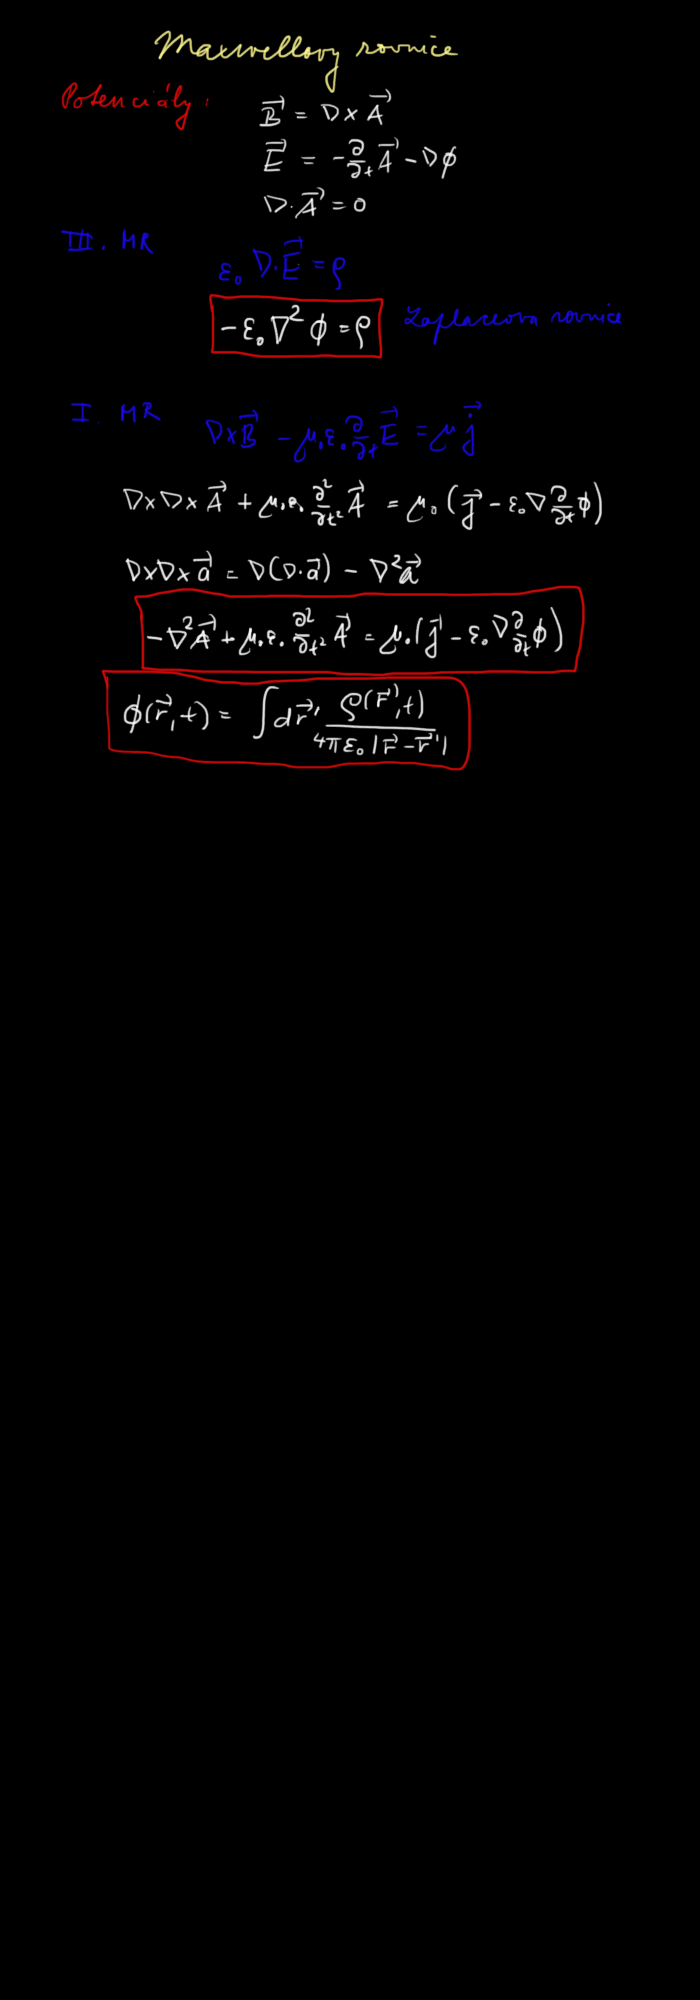 Maxwellovy rovnice
Potenciály: B⃗ = ∇×A⃗
E⃗ = -∂/∂t A⃗ - ∇ϕ
∇·A⃗ = 0
III. MR
ε₀ ∇·E⃗ = ρ
-ε₀ ∇² ϕ = ρ Laplaceova rovnice
I MR ∇×B⃗ - μ₀ε₀ ∂/∂t E⃗ = μ j⃗
∇×∇×A⃗ + μ₀ε₀ ∂²/∂t² A⃗ = μ₀ (j⃗ - ε₀∇ ∂/∂t ϕ)
∇×∇×a⃗ = ∇(∇·a⃗) - ∇²a⃗
-∇²A⃗ + μ₀ε₀ ∂²/∂t² A⃗ = μ₀(j⃗ - ε₀∇ ∂/∂t ϕ)
ϕ(r⃗,t) = ∫dr⃗' ρ(r⃗',t) / 4πε₀|r⃗-r⃗'|